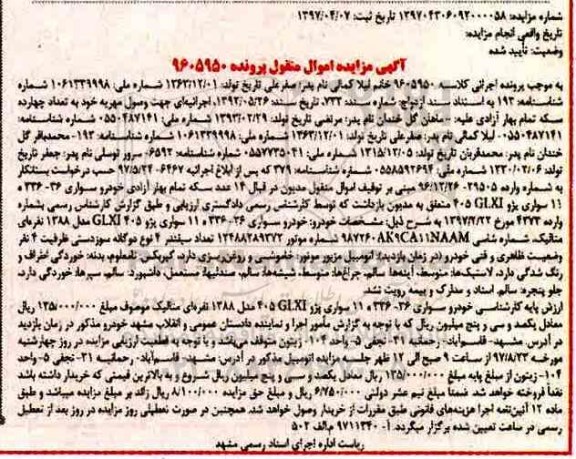 شماره مزایده: ۱۳۹۷۰۴۳۰۶۰۹۲۰۰۰۰۵۸ تاریخ ثبت: ۱۳۹۷/۰۴/۰۷
تاریخ واقعی انجام مزایده:
وضعیت: تأیید شده
آگهی مزایده اموال منقول پرونده ۹۶۰۵۹۵۰
به موجب پرونده اجرائی کلاسه ۹۶۰۵۹۵۰ خانم لیلا کمالی نام پدر: صفرعلی تاریخ تولد: ۱۳۶۳/۱۲/۰۱ شماره ملی: ۱۰۶۱۳۳۹۹۹۸ شماره
شناسنامه: ۱۹۳ به استناد سند ازدواج: شماره سند: ۷۳۳، تاریخ سند: ۱۳۹۲/۰۵/۲۶، اجرائیه‌ای جهت وصول مهریه خود به تعداد چهارده
سکه تمام بهار آزادی علیه: - ماهان گل خندان نام پدر: مرتضی تاریخ تولد: ۱۳۹۳/۰۲/۲۹ شماره ملی: ۰۵۵۰۴۸۷۱۴۱ شماره شناسنامه:
۰۵۵۰۴۸۷۱۴۱- لیلا کمالی نام پدر: صفر علی تاریخ تولد: ۱۳۶۳/۱۲/۰۱ شماره ملی: ۱۰۶۱۳۳۹۹۹۸ شماره شناسنامه: ۱۹۳- محمدباقر گل
خندان نام پدر: محمدقربان تاریخ تولد: ۱۳۱۵/۱۲/۰۵ شماره ملی: ۰۵۵۷۷۳۵۰۴۱ شماره شناسنامه: ۶۵۹۲- سرور توسلی نام پدر: جعفر تاریخ
تولد: ۱۳۳۰/۰۲/۰۶ شماره ملی: ۰۵۵۸۵۹۲۶۹۴ شماره شناسنامه: ۳۷۹ که پس از ابلاغ اجرائیه ۶۴۶۷-۹۷/۵/۲۴ حسب درخواست بستانکار
به شماره وارده ۲۹۵۰۵-۹۶/۱۲/۲۶ مبنی بر توقیف اموال منقول مدیون در قبال ۱۴ عدد سکه تمام بهار آزادی خودرو سواری ۳۶-۳۳۶ ه
۱۱ سواری پژو ۴۰۵ GLXI متعلق به مدیون بازداشت که توسط کارشناس رسمی دادگستری ارزیابی و طبق گزارش کارشناس رسمی بشماره
وارده ۴۳۷۳ مورخ ۱۳۹۷/۲/۲۲ به شرح ذیل: مشخصات خودرو: خودرو سواری ۳۶-۳۳۶ ه ۱۱ سواری پژو ۴۰۵ GLXI مدل ۱۳۸۸ نقره‌ای
متالیک، شماره شاسی NAAM۱۱CA۹AK۹۸۷۲۶۰ شماره موتور ۱۲۴۸۸۲۸۹۳۷۲ تعداد سیلندر ۴ نوع دوگانه سوز‌دستی ظرفیت ۴ نفر
وضعیت ظاهری و فنی خودرو (در زمان بازدید): اتومبیل مزبور موتور: خاموشی و روغن‌ریزی دارد، گیربکس: نامعلوم، بدنه: خوردگی اطراف و
رنگ شدگی دارد، لاستیک‌ها: متوسط، آینه‌ها سالم، چراغ‌ها: متوسط، شیشه‌ها: سالم، صندلیها: مستعمل، داشبورد: سالم، سپرها: خوردگی دارد،
جلو پنجره: سالم، اسناد و مدارک و بیمه رویت نشد.
ارزش پایه کارشناسی خودرو سواری ۳۶-۳۳۶ ه ۱۱ سواری پژو ۴۰۵ GLXI مدل ۱۳۸۸ نقره‌ای متالیک موصوف مبلغ ۱۳۵/۰۰۰/۰۰۰ ریال
معادل یکصد و سی و پنج میلیون ریال که با توجه به گزارش مأمور اجرا و نماینده دادستان عمومی و انقلاب مشهد خودرو مذکور در زمان بازدید
در آدرس: مشهد- قاسم‌آباد- رحمانیه ۲۱- نجفی ۵- واحد ۱۰۴- زیتون متوقف می‌باشد و با توجه به قطعیت ارزیابی مزایده در روز چهارشنبه
مورخه ۹۷/۸/۲۳ از ساعت ۹ صبح الی ۱۲ ظهر جلسه مزایده اتومبیل مذکور در آدرس: مشهد- قاسم‌آباد- رحمانیه ۲۱- نجفی ۵- واحد
۱۰۴- زیتون از مبلغ پایه مبلغ ۱۳۵/۰۰۰/۰۰۰ ریال معادل یکصد و سی و پنج میلیون ریال شروع و به بالاترین قیمتی که خریدار داشته باشد
نقداً فروخته خواهد شد. ضمناً مبلغ نیم عشر دولتی ۶/۷۵۰/۰۰۰ ریال و مبلغ حق مزایده ۸/۱۰۰/۰۰۰ ریال زائد بر مبلغ مزایده میباشد و طبق
ماده ۱۲ آئین‌نامه اجرا هزینه‌های قانونی طبق مقررات از خریدار وصول خواهد شد. همچنین در صورت تعطیلی روز مزایده در روز بعد از تعطیل
رسمی در ساعت تعیین شده برگزار میگردد. آ- ۹۷۱۱۳۴۰ م.الف ۵۰۲
ریاست اداره اجرای اسناد رسمی مشهد